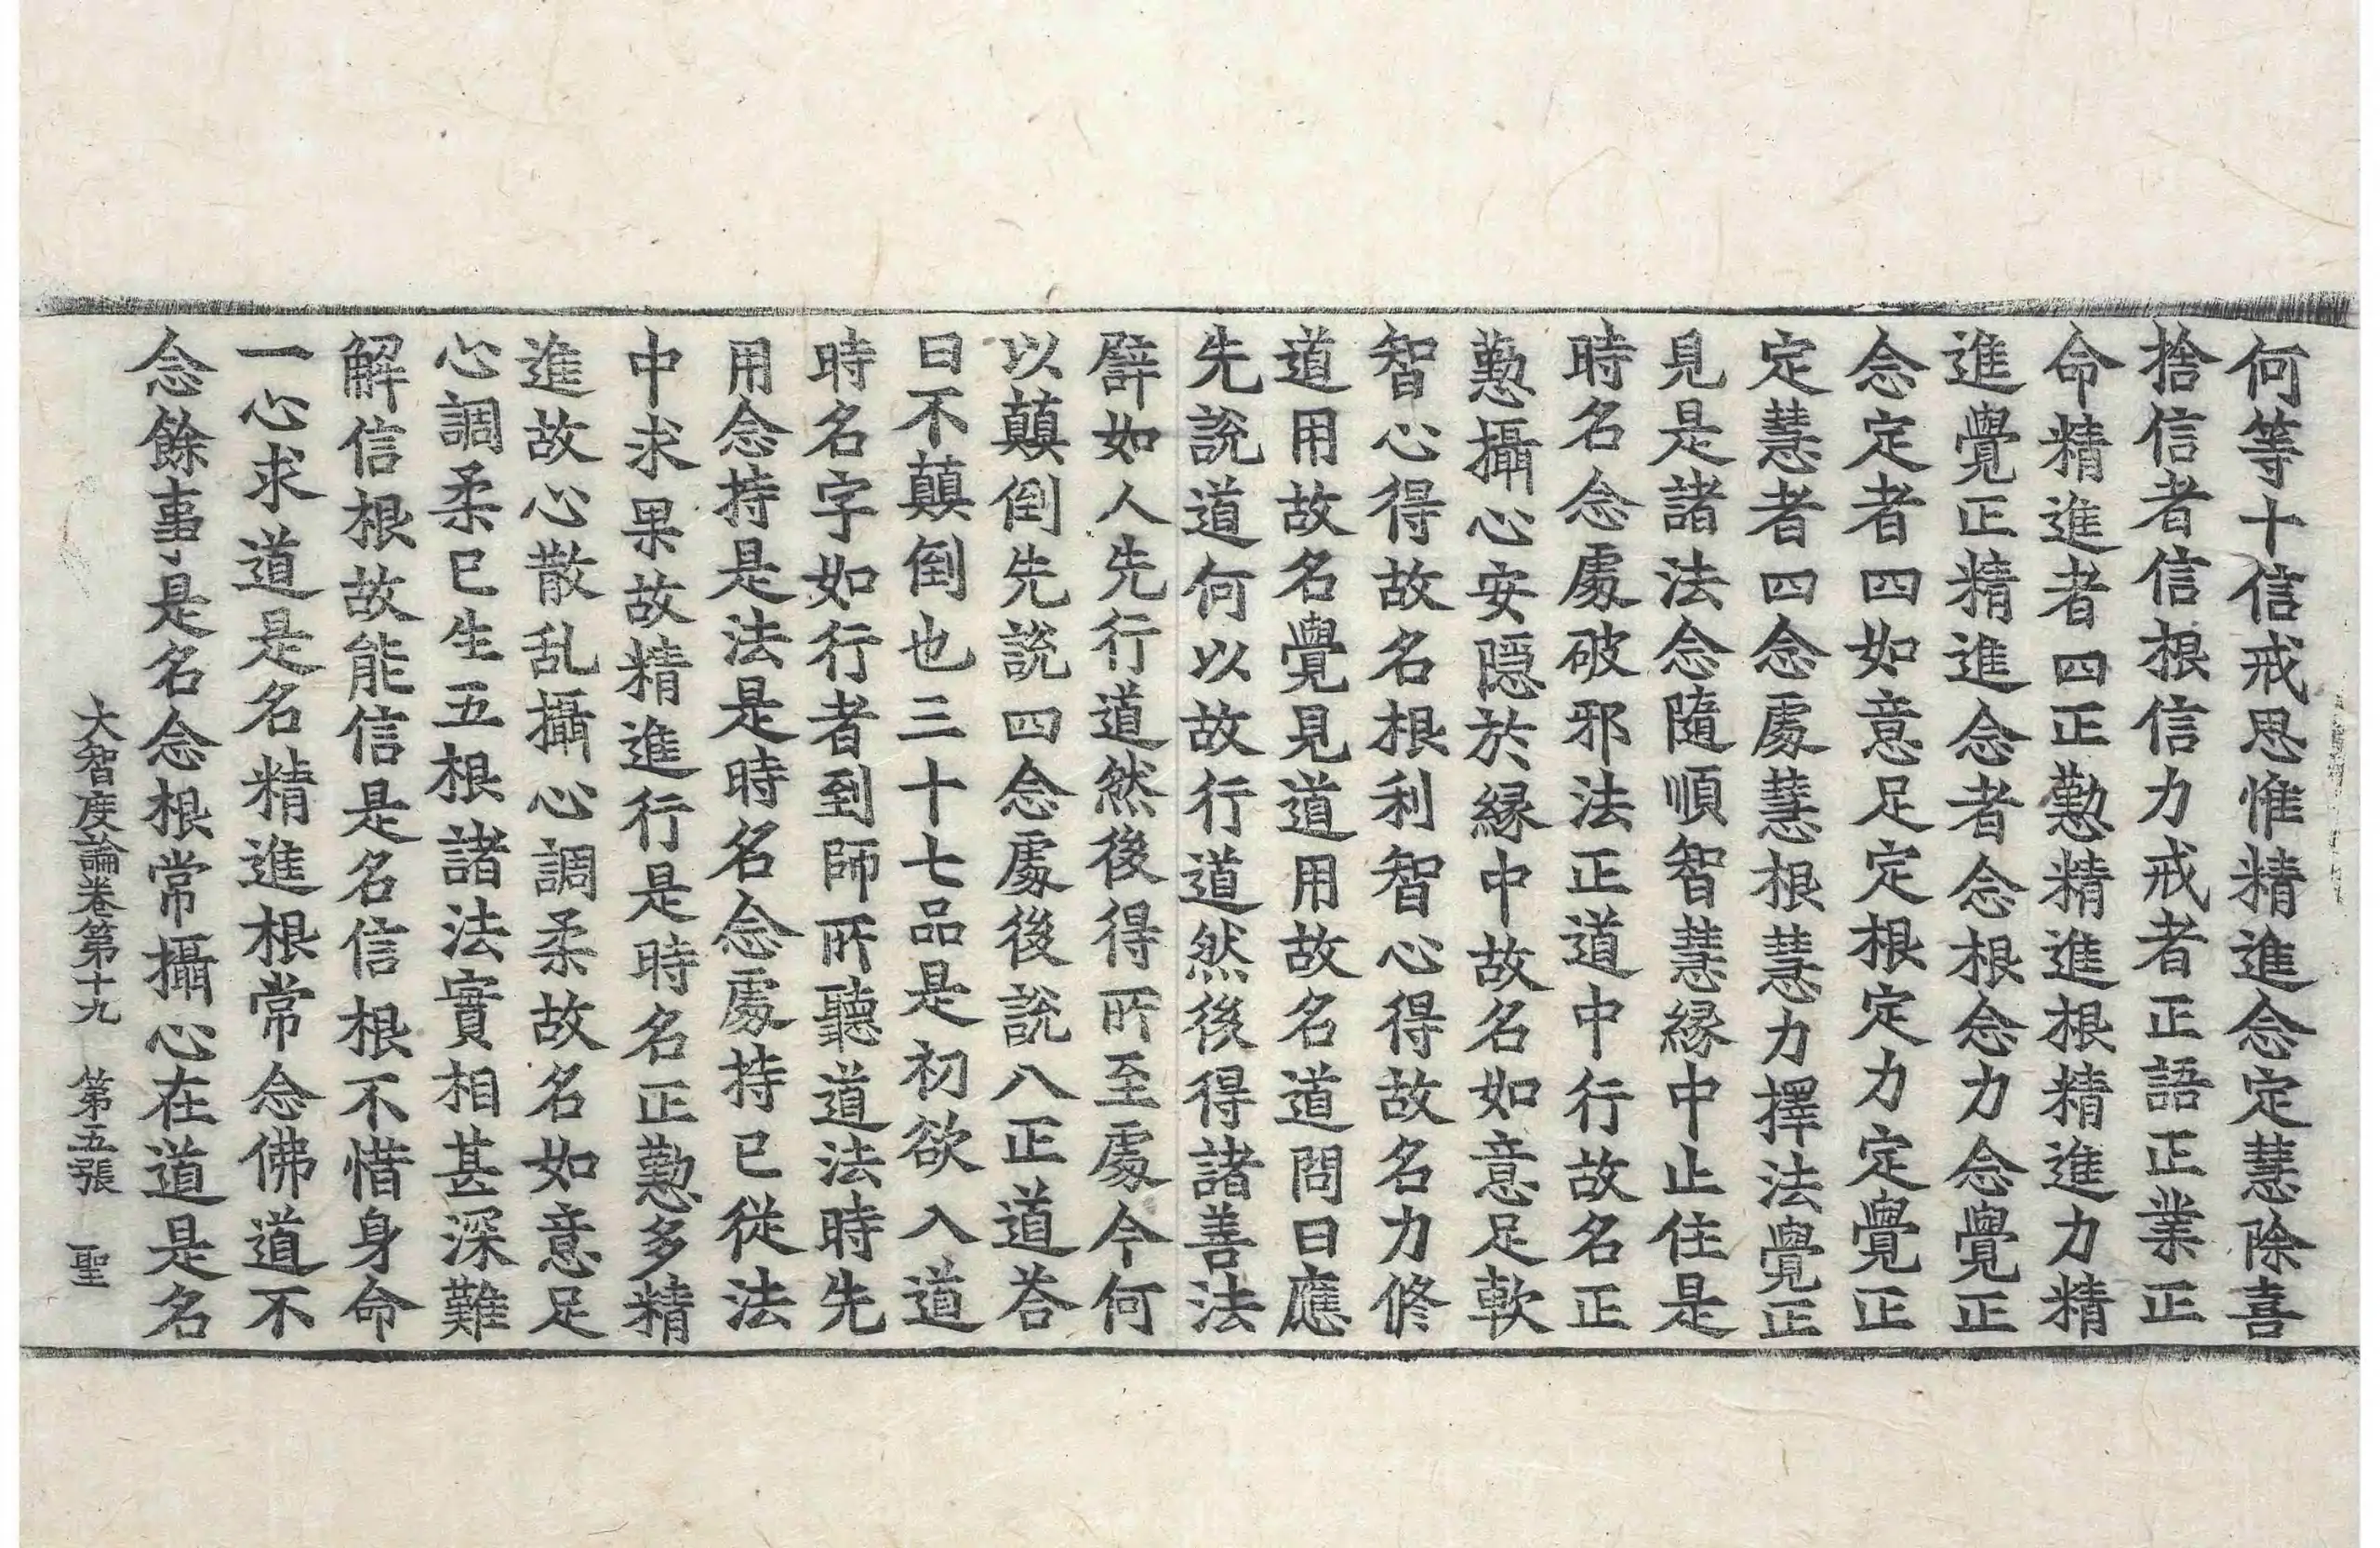 何等十信戒思惟精進念定慧除喜
捨信者信根信力戒者正語正業正
命精進者四正懃精進根精進力精
進覺正精進念者念根念力念覺正
念定者四如意足定根定力定覺正
定慧者四念處慧根慧力擇法覺正
見是諸法念隨順智慧縁中止住是
時名念處破邪法正道中行故名正
懃攝心安隱於縁中故名如意足軟
智心得故名根利智心得故名力修
道用故名覺見道用故名道問曰應
先說道何以故行道然後得諸善法
譬如人先行道然後得所至處今何
以顚倒先說四念處後說八正道荅
曰不顚倒也三十七品是初欲入道
時名字如行者到師所聽道法時先
用念持是法是時名念處持已從法
中求果故精進行是時名正懃多精
進故心散乱攝心調柔故名如意足
心調柔已生五根諸法實相甚深難
解信根故能信是名信根不惜身命
一心求道是名精進根常念佛道不
念餘事是名念根常攝心在道是名
大智度論卷第十九 第五張 聖